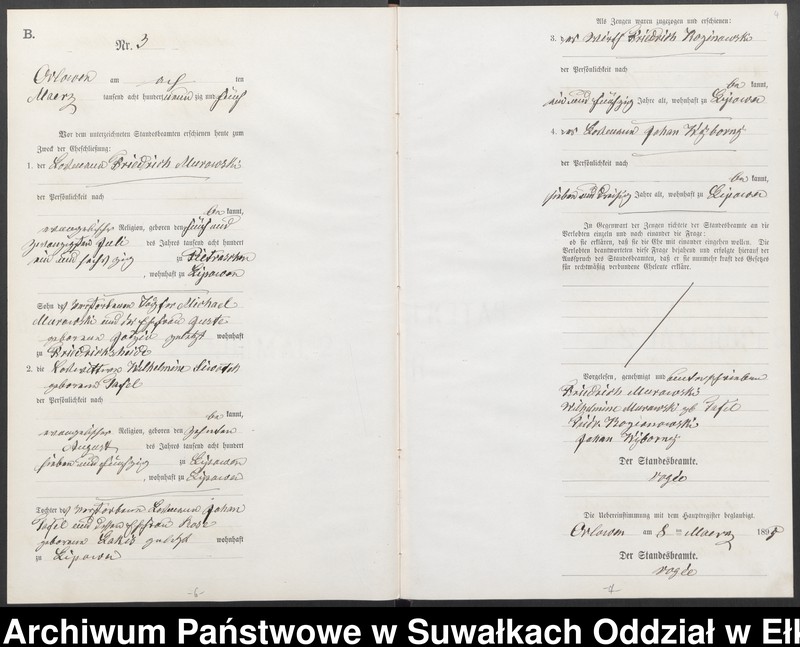 B.
Nr. 3
Orlowen am acht ten
Maerz tausend acht hundert neun zig und fünf
Vor dem unterzeichneten Standesbeamten erschienen heute zum
Zweck der Eheschließung:
1. der Losmann Friedrich Murawski
der Persönlichkeit nach
be kannt,
evangelischer Religion, geboren den fünf und
zwanzigsten Juli des Jahres tausend acht hundert
ein und sechszig zu Pietraschen
, wohnhaft zu Lipowen
Sohn des verstorbenen Michael
Murawski und der Ehefrau Guste
geborene zuletzt wohnhaft
zu Friedrichsheide
2. die Loswittwe Wilhelmine
geborene Tafel
der Persönlichkeit nach
be kannt,
evangelischer Religion, geboren den zehnten
August des Jahres tausend acht hundert
sieben und fünfzig zu Lipowen
, wohnhaft zu Lipowen
Tochter des verstorbenen Losmann Johan
Tafel und dessen Ehefrau Rose
geborene zuletzt wohnhaft
zu Lipowen
-6-
4
Als Zeugen waren zugezogen und erschienen:
3. der Wirth Friedrich Roginowski
der Persönlichkeit nach
be kannt,
ein und fünfzig Jahre alt, wohnhaft zu Lipowen
4. der Losmann Johan Wyborny
der Persönlichkeit nach
be kannt,
sieben und dreißig Jahre alt, wohnhaft zu Lipowen
In Gegenwart der Zeugen richtete der Standesbeamte an die
Verlobten einzeln und nach einander die Frage:
ob sie erklären, daß sie die Ehe mit einander eingehen wollen. Die
Verlobten beantworteten diese Frage bejahend und erfolgte hierauf der
Ausspruch des Standesbeamten, daß er sie nunmehr kraft des Gesetzes
für rechtmäßig verbundene Eheleute erkläre.
Vorgelesen, genehmigt und unterschrieben
Friedrich Murawski
Wilhelmine Murawski gb Tafel
Fridr. Rogianowski
Johan Wyborny
Der Standesbeamte.
Die Uebereinstimmung mit dem Hauptregister beglaubigt.
Orlowen am 8 ten Maerz 1895
Der Standesbeamte.
-7-
Archiwum Państwowe w Suwałkach Oddział w Ełk